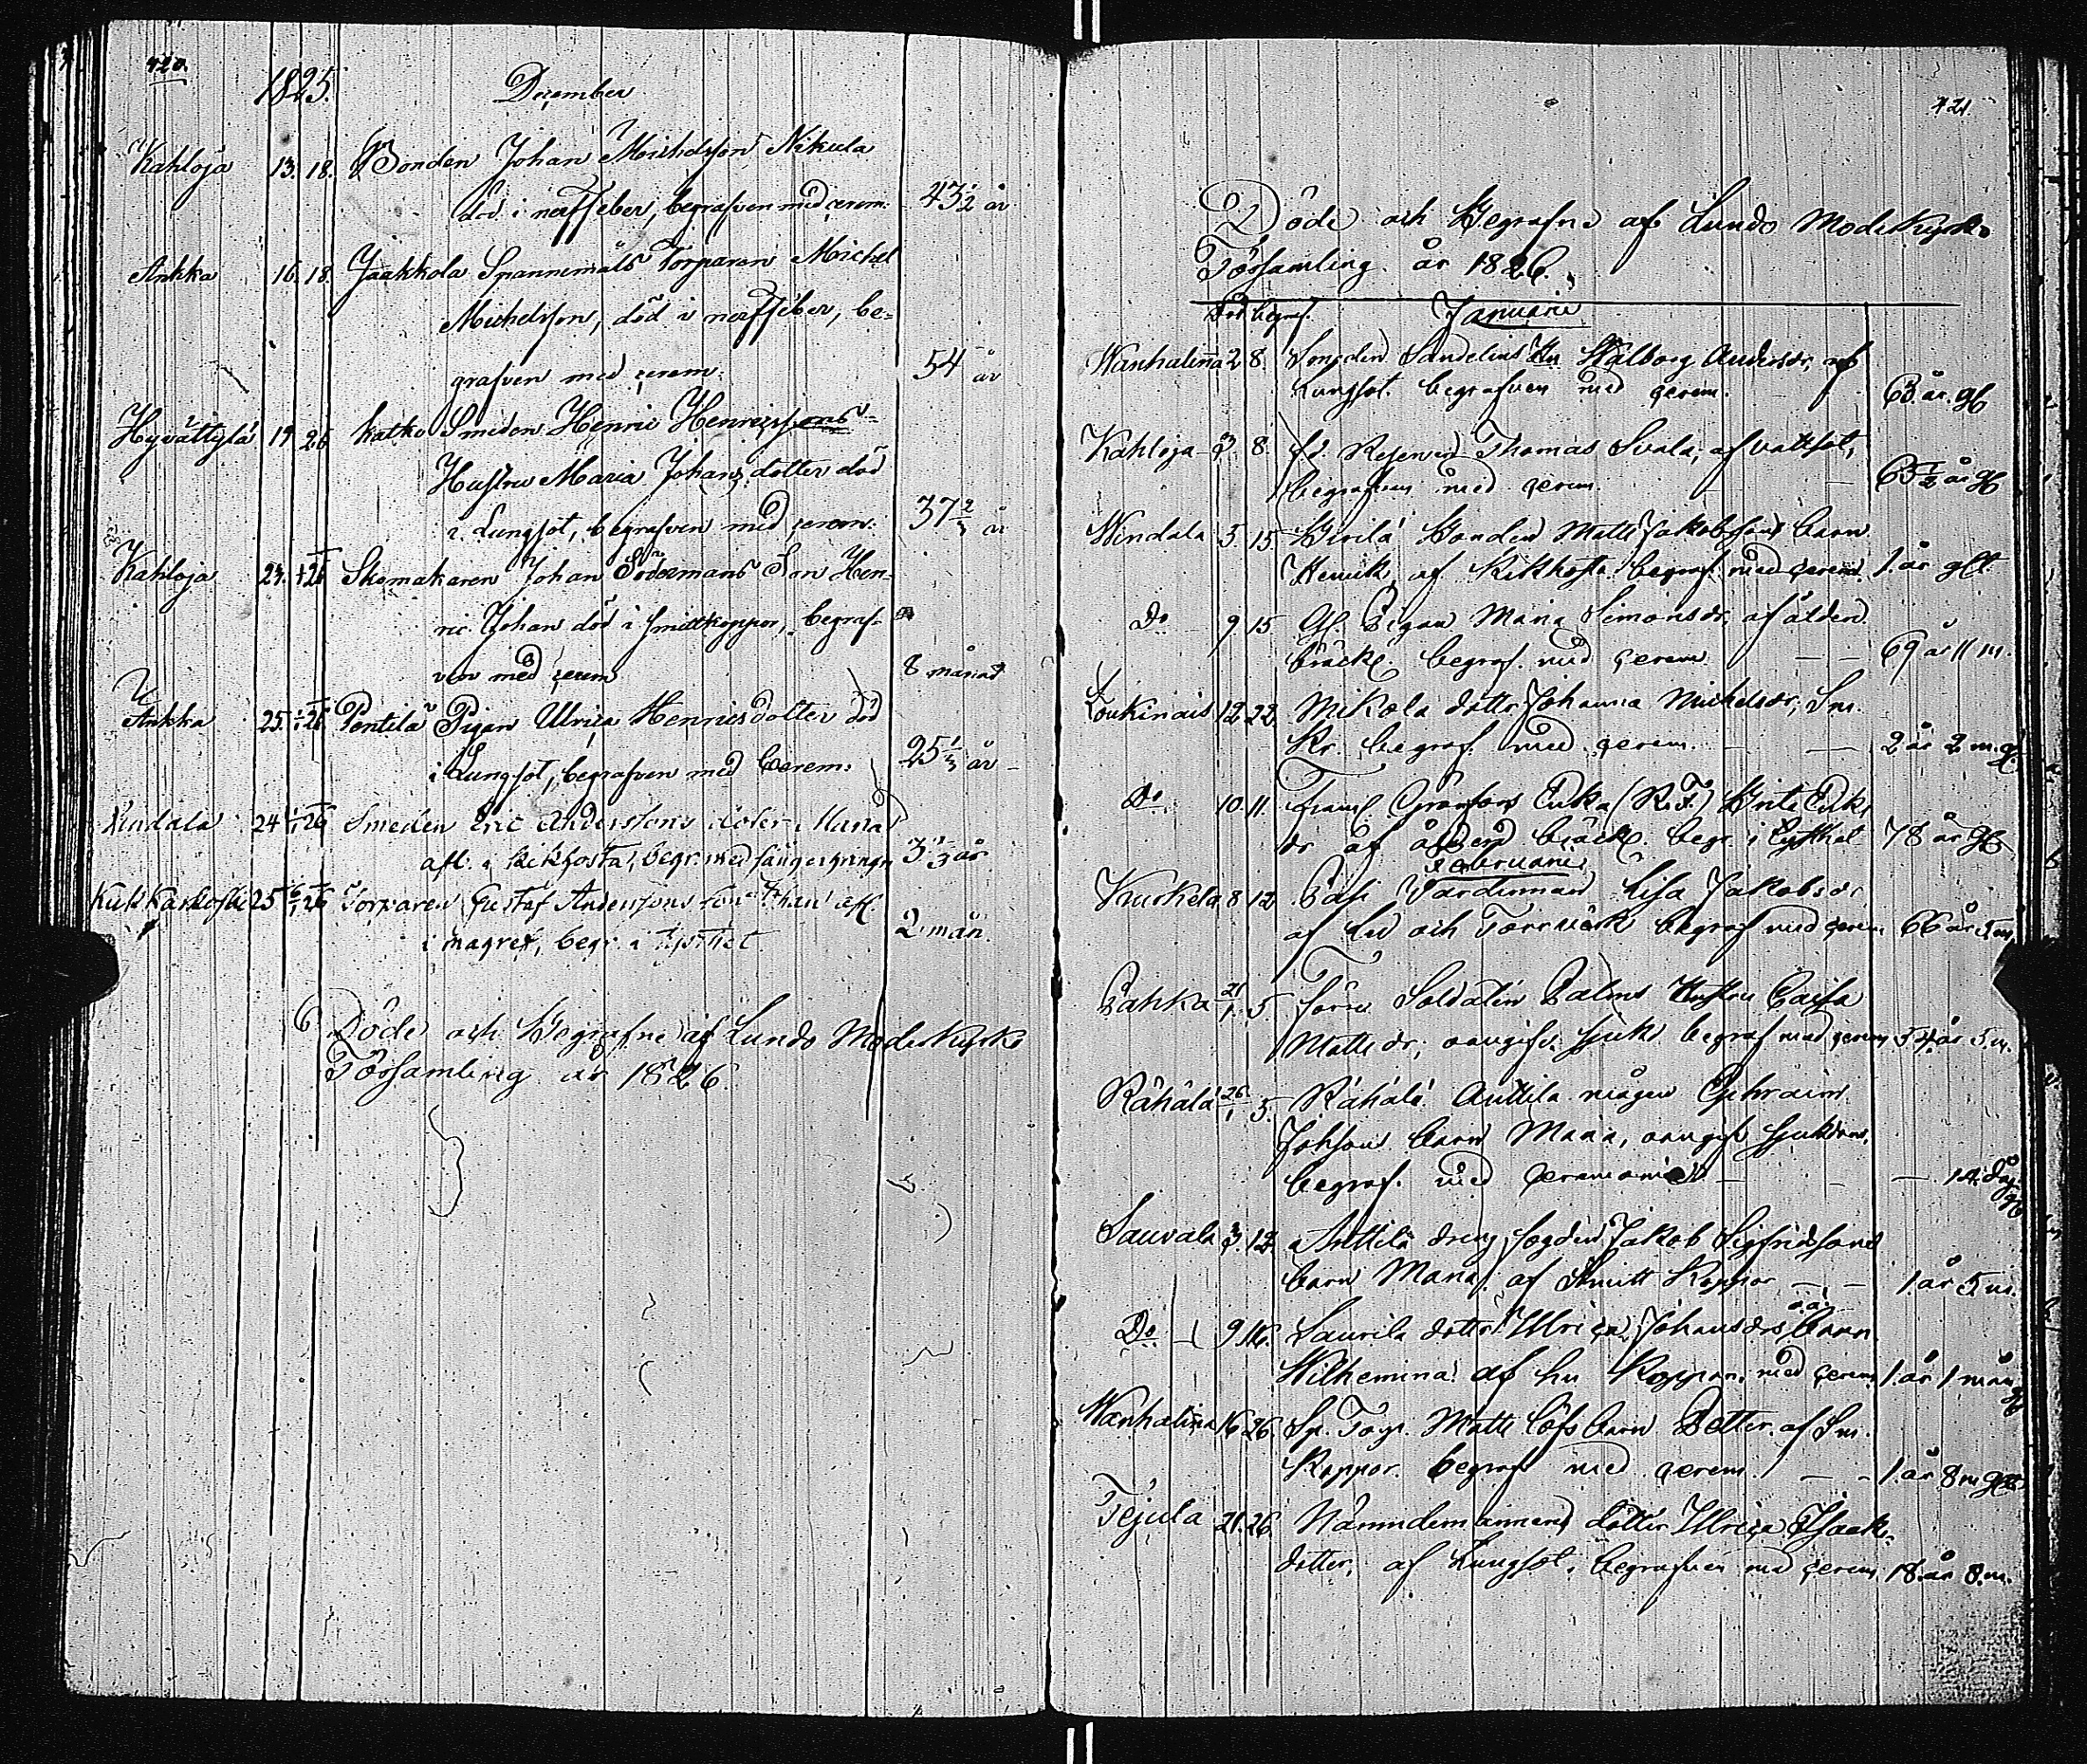 420.
1825. December
Kahloja 13. 18. Bonden Johan Michelsson Nikula
död i nerffeber, begrafven med cerem. 43 1/2 år
Ankka 16. 18. Jaakkola Spannemåls Torparen Michel
Michelsson, död i nerffeber, be=
grafven med cerem. 54 år
Hyvättylä 19 26 Smeden Henric Henricssons
Hustru Maria Johans dotter död
i Lungsot, begrafven med cerem. 37 2/3 år
Kahloja 24. 1/1 26 Skomakaren Johan Södermans Son Hen=
ric Johan död i smittkoppor, begraf=
ven med cerem 8 månad
Ankka 25. 1/1 26 Pentilä Pigan Ulrica Henricsdotter död
i Lungsot, begrafven med Cerem. 25 1/3 år
Lindala 24 1/1 26 Smeden Eric Anderssons doter Maria
afl. i kikhosta, begr. med 3 1/3 år
25 6/1 26 Torparen Gustaf Anderssons son Johan afl.
i magref, begr. i tysthet 2 mån.
Döde och Begrafne af Lundo Moderkyrko
Församling år 1826.
421
Döde och Begrafne af Lundo Moderkyrko
Församling år 1826.
Död begraf. Januarii
Wanhalinna 2 8. Sandelius Hu Walborg Andersdr, af
Lungsot. begrafven med cerem. 63 år.
Kahloja 3. 8. fd. Thomas Svala, af vattsot,
begrafven med cerem. 65 1/2 år
Windala 5. 15. Bonden Matts Jakobssons barn
Henrik, af Kikhosta begraf. med cerem. 1. år
Do 9. 15. Pigan Maria Simonsdr, af ålderd.
bräckl. begraf. med cerem 69 år 11 m.
Loukinais 12 22. Mikola dotter Johanna Michelsdr, Sm.
Kr. begraf. med cerem. 2 år 2 m.
Do 10. 11. Enka (R. F.) Brita Eriks
dr af ålderd bräckl. begr. i tysthet 78 år
Februarii
Kurkela 8 12 Lisa Jakobsdr
af Led och Torrvärk begraf med cerem 66 år 5 m.
Pahka 21/1 5 förre Soldaten Palms Hustru Caisa
Matts dr; oangif. sjukd begraf med cerem 54 år 5 m.
Rähälä 26/1 5. Rähälä Anttila mågen Ephraim
Johssons barn Maria, oangif sjukdom,
begraf. med Ceremonier 14. dag
Sauvala 3. 12 Anttila dreng Jakob Sigfridssons
barn Maria af Smitt Koppor 1. år 5 m.
Do 9. 16. Saurila dotter Ulrica Johansdrs o.ä. barn
Wilhemina af hu Koppor, med cerem 1. år 1 mån
Wanhalinna 16 26. Matts Löfs barn Dotter. af Sm.
Koppor. begraf med cerem. 1. år 8 m
Tejula 21. 26 Nämndemannens dotter Ulrica Isaaks
dotter, af Lungsot. begrafven med cerem. 18. år 8. m.